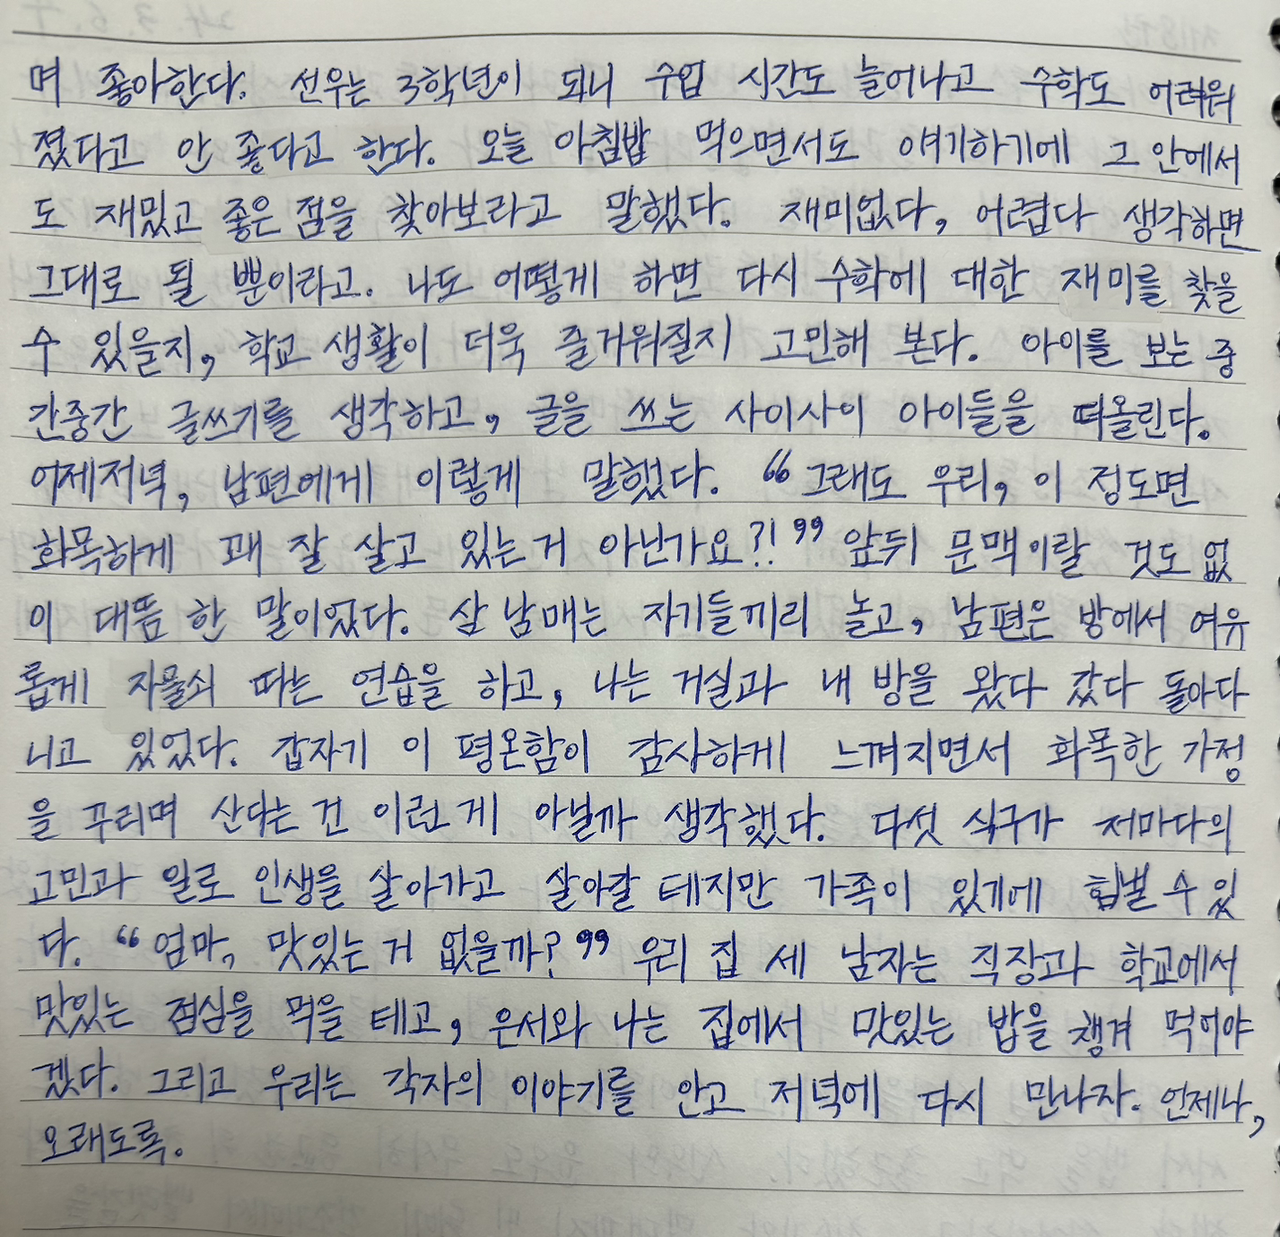 며 좋아한다. 선우는 3학년이 되니 수업 시간도 늘어나고 수학도 어려워
졌다고 안 좋다고 한다. 오늘 아침밥 먹으면서도 얘기하기에 그 안에서
도 재밌고 좋은 점을 찾아보라고 말했다. 재미없다, 어렵다 생각하면
그대로 될 뿐이라고. 나도 어떻게 하면 다시 수학에 대한 재미를 찾을
수 있을지, 학교 생활이 더욱 즐거워질지 고민해 본다. 아이를 보는 중
간중간 글쓰기를 생각하고, 글을 쓰는 사이사이 아이들을 떠올린다.
어제저녁, 남편에게 이렇게 말했다. “그래도 우리, 이 정도면
화목하게 꽤 잘 살고 있는거 아닌가요?!” 앞뒤 문맥이랄 것도 없
이 대뜸 한 말이었다. 삼 남매는 자기들끼리 놀고, 남편은 방에서 여유
롭게 자물쇠 따는 연습을 하고, 나는 거실과 내 방을 왔다 갔다 돌아다
니고 있었다. 갑자기 이 평온함이 감사하게 느껴지면서 화목한 가정
을 꾸리며 산다는 건 이런 게 아닐까 생각했다. 다섯 식구가 저마다의
고민과 일로 인생을 살아가고 살아갈 테지만 가족이 있기에 힘낼 수 있
다. “엄마, 맛있는 거 없을까?” 우리 집 세 남자는 직장과 학교에서
맛있는 점심을 먹을 테고, 은서와 나는 집에서 맛있는 밥을 챙겨 먹어야
겠다. 그리고 우리는 각자의 이야기를 안고 저녁에 다시 만나자. 언제나,
오래도록.